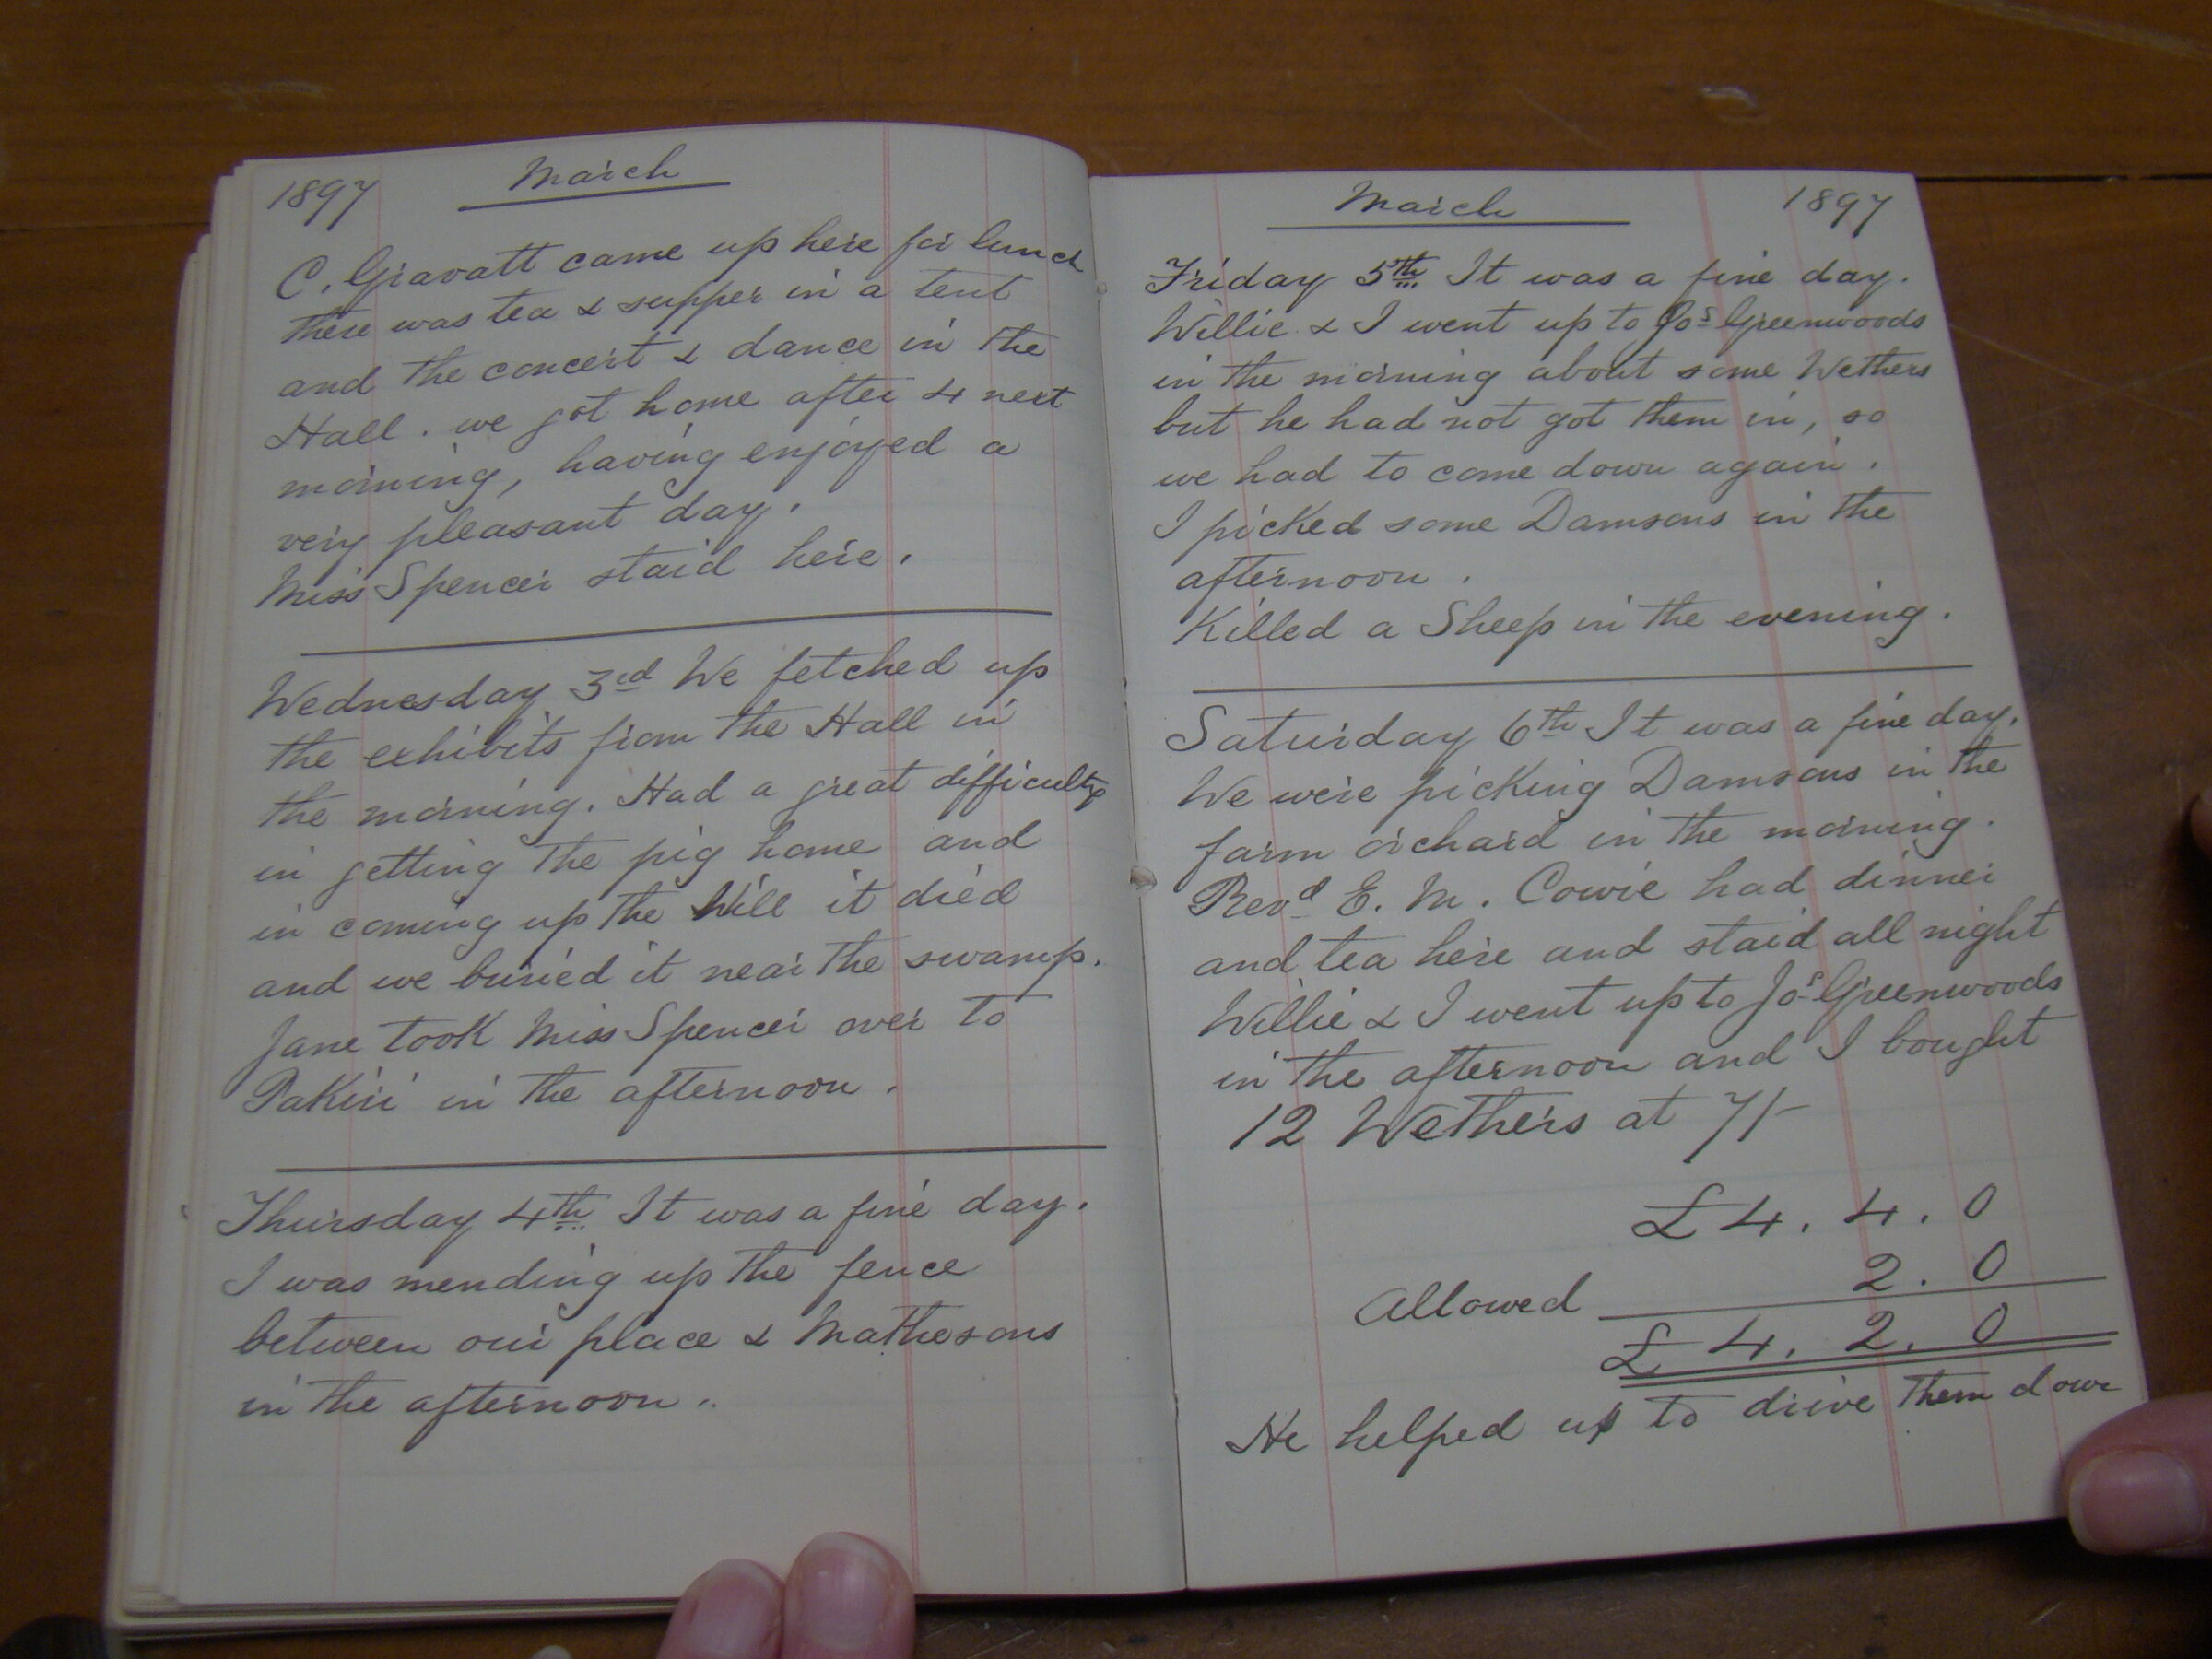 1897 March
C. Gravatt came up here for lunch
there was tea & supper in a tent
and the concert & dance in the
Hall. we got home after 4 next
morning, having enjoyed a
very pleasant day.
Miss Spencer staid here.
Wednesday 3rd We fetched up
the exhibits from the Hall in
the morning. Had a great difficulty
in getting the pig home and
in coming up the Hill it died
and we buried it near the swamp.
Jane took Miss Spencer over to
Pakiri in the afternoon.
Thursday 4th It was a fine day.
I was mending up the fence
between our place & Mathesons
in the afternoon..
March 1897
Friday 5th It was a fine day.
Willie & I went up to Jos Greenwoods
in the morning about some Wethers
but he had not got them in, so
we had to come down again.
I picked some Damsons in the
afternoon.
Killed a Sheep in the evening.
Saturday 6th It was a fine day.
We were picking Damsons in the
farm orchard in the morning.
Revd E. M. Cowie had dinner
and tea here and staid all night
Willie & I went up to Jos Greenwoods
in the afternoon and I bought
12 Wethers at 7/-
£4. 4. 0
Allowed 2. 0
£ 4. 2. 0
He helped us to drive them down